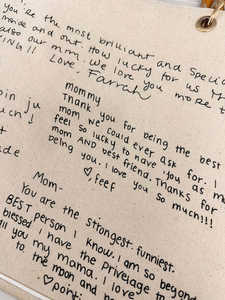 you're the most brilliant and special
inside and out. How lucky for us
also our mm. We love you more t
Love, Farrah
mommy
Thank you for being the best
mom we could ever ask for. I
feel so lucky to have you as my
mom AND best friend. Thanks for
being you. I love you so much!!!
♡, feef
oin ju
uch ↓
t
ade
Mom-
You are the strongest, funniest,
BEST person I know. I am so beyond
blessed I have the privelage to
all you my mama. I love
to the moon and
♡